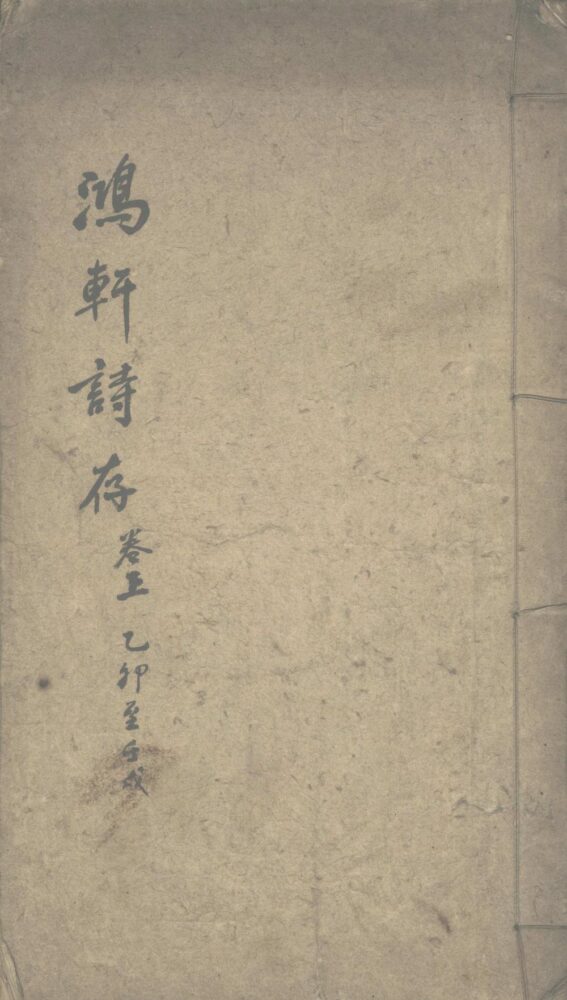 鴻軒詩存
卷上 乙卯至壬戌